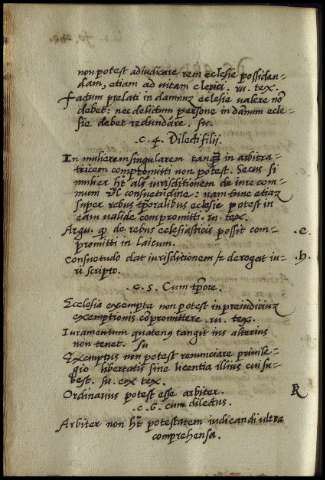 non potest adiudicare rem eclesie possiden-
dam, etiam ad uitam clerici. iu. tex.
factum prelati in damnum eclesie ualere nõ
debet: nec delictum persone in danum ecle-
sie debet redundare. Su.
.c. 4. Dilecti filii.
In mulierem singularem tanqȝ in arbitra
tricem compromitti non potest. Secus si
mulier hẽt als iurisditionem de iure com-
muni uel consuetudine: nam tunc etiaȝ
super rebus tẽporalibus eclesie potest in
eam ualide compromitti. iu. tex.
Argu. qp de rebus eclesiasticis possit com- .c.
promitti in laicum.
Consuetudo dat iurisditionem et derogat iu- .h.
ri scripto.
.c. 5. Cum tpore.
Eclesia exempta non potest in preiudiciuȝ
exemptionis cõpromittere. iu. tex.
Iuramentum quatenus tangit ius alterius
non tenet. Su
Exemptus non potest renunciare priuile-
gio libertatis sine licentia illius cui sub-
est. su. ex tex.
Ordinarius potest esse arbiter. R
.c. 6. cum dilectus.
Arbiter non hẽt potestatem iudicandi ultra
comprehensa.